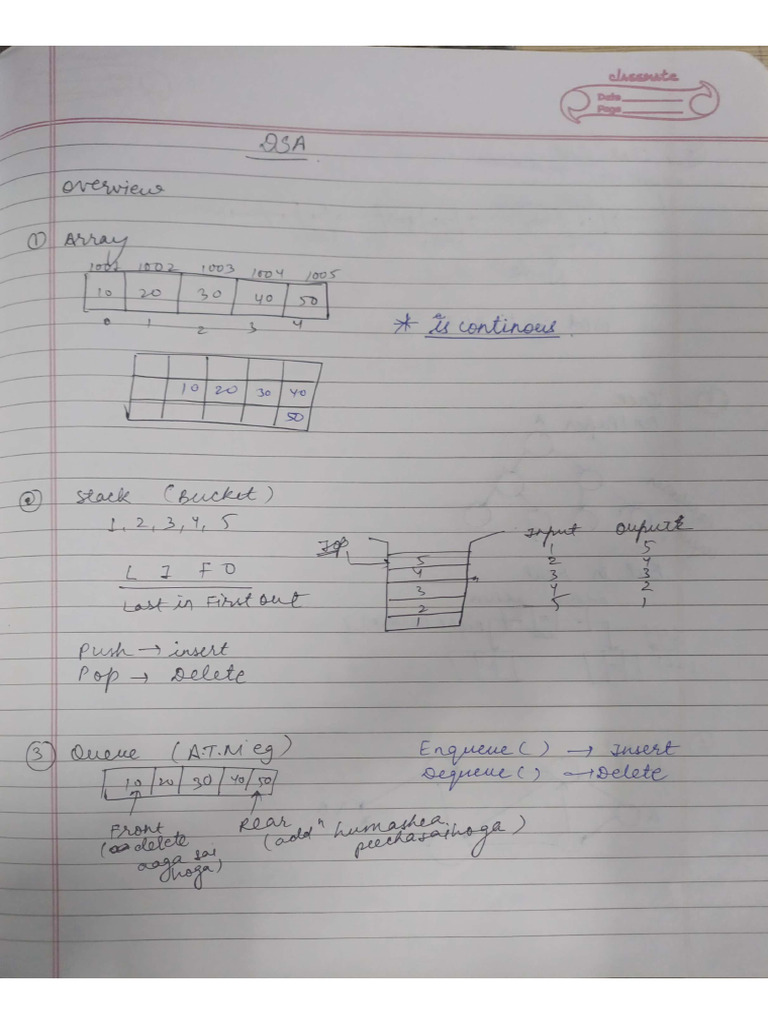 classmate
Date
Page
DSA
overview
① Array
1001 1002 1003 1004 1005
10 20 30 40 50
0 1 2 3 4
* is continous.
10 20 30 40
50
② Stack (Bucket)
1, 2, 3, 4, 5
L I F O
Last in First out
Top
5
4
3
2
1
Input Ouput
1 5
2 4
3 3
4 2
5 1
Push → insert
Pop → Delete
③ Queue (A.T.M eg)
10 20 30 40 50
Front
(delete
aaga sai
hoga)
Rear
(addn humashea
peechasaihoga)
Enqueue ( ) → Insert
Dequeue ( ) → Delete